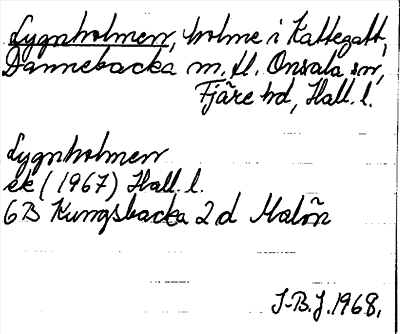 Lygnholmen, holme i Kattegatt,
Dannebacka m. fl. Onsala sn,
Fjäre hd, Hall. l.
Lygnholmen
ek (1967) Hall. l.
6B Kungsbacka 2d Malön
J-B.J. 1968.